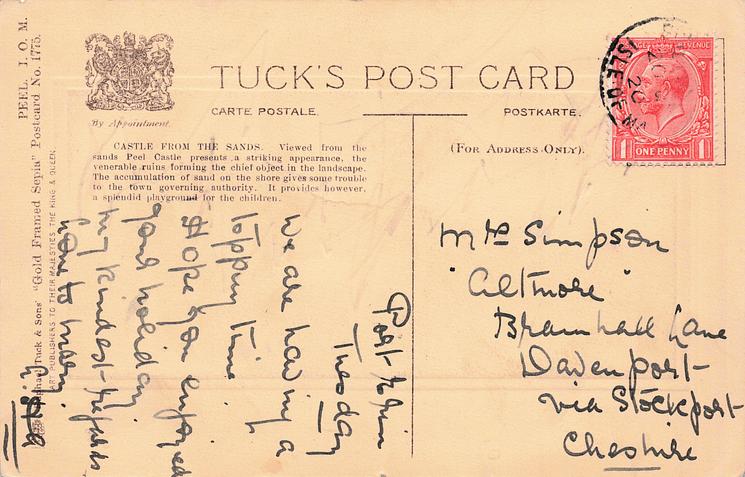 PEEL, I. O. M.
Raphael Tuck & Sons' "Gold Framed Sepia" Postcard No. 1775.
ART PUBLISHERS TO THEIR MAJESTIES THE KING & QUEEN.
By Appointment.
TUCK'S POST CARD
CARTE POSTALE.
POSTKARTE.
(FOR ADDRESS ONLY).
CASTLE FROM THE SANDS. Viewed from the
sands Peel Castle presents a striking appearance, the
venerable ruins forming the chief object in the landscape.
The accumulation of sand on the shore gives some trouble
to the town governing authority. It provides however,
a splendid playground for the children.
ISLE OF MAN
20
POSTAGE REVENUE
1 ONE PENNY 1
Port Erin
Tuesday
We are having a
topping time.
Hope you enjoyed
good holiday
my kindest regards
Mrs Simpson
"Altmore"
Bramhall Lane
Davenport
via Stockport
Cheshire